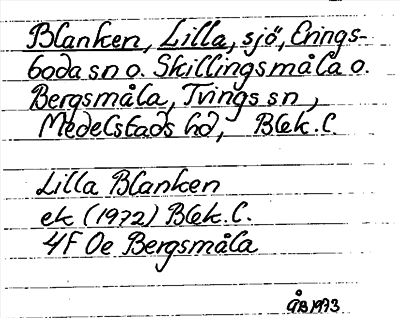 Blanken, Lilla, sjö, Erings-
boda sn o. Skillingsmåla o.
Bergsmåla, Tvings sn,
Medelstads hd, Blek. l.
Lilla Blanken
ek (1972) Blek. l.
4F 0e Bergsmåla
ÅB 1973